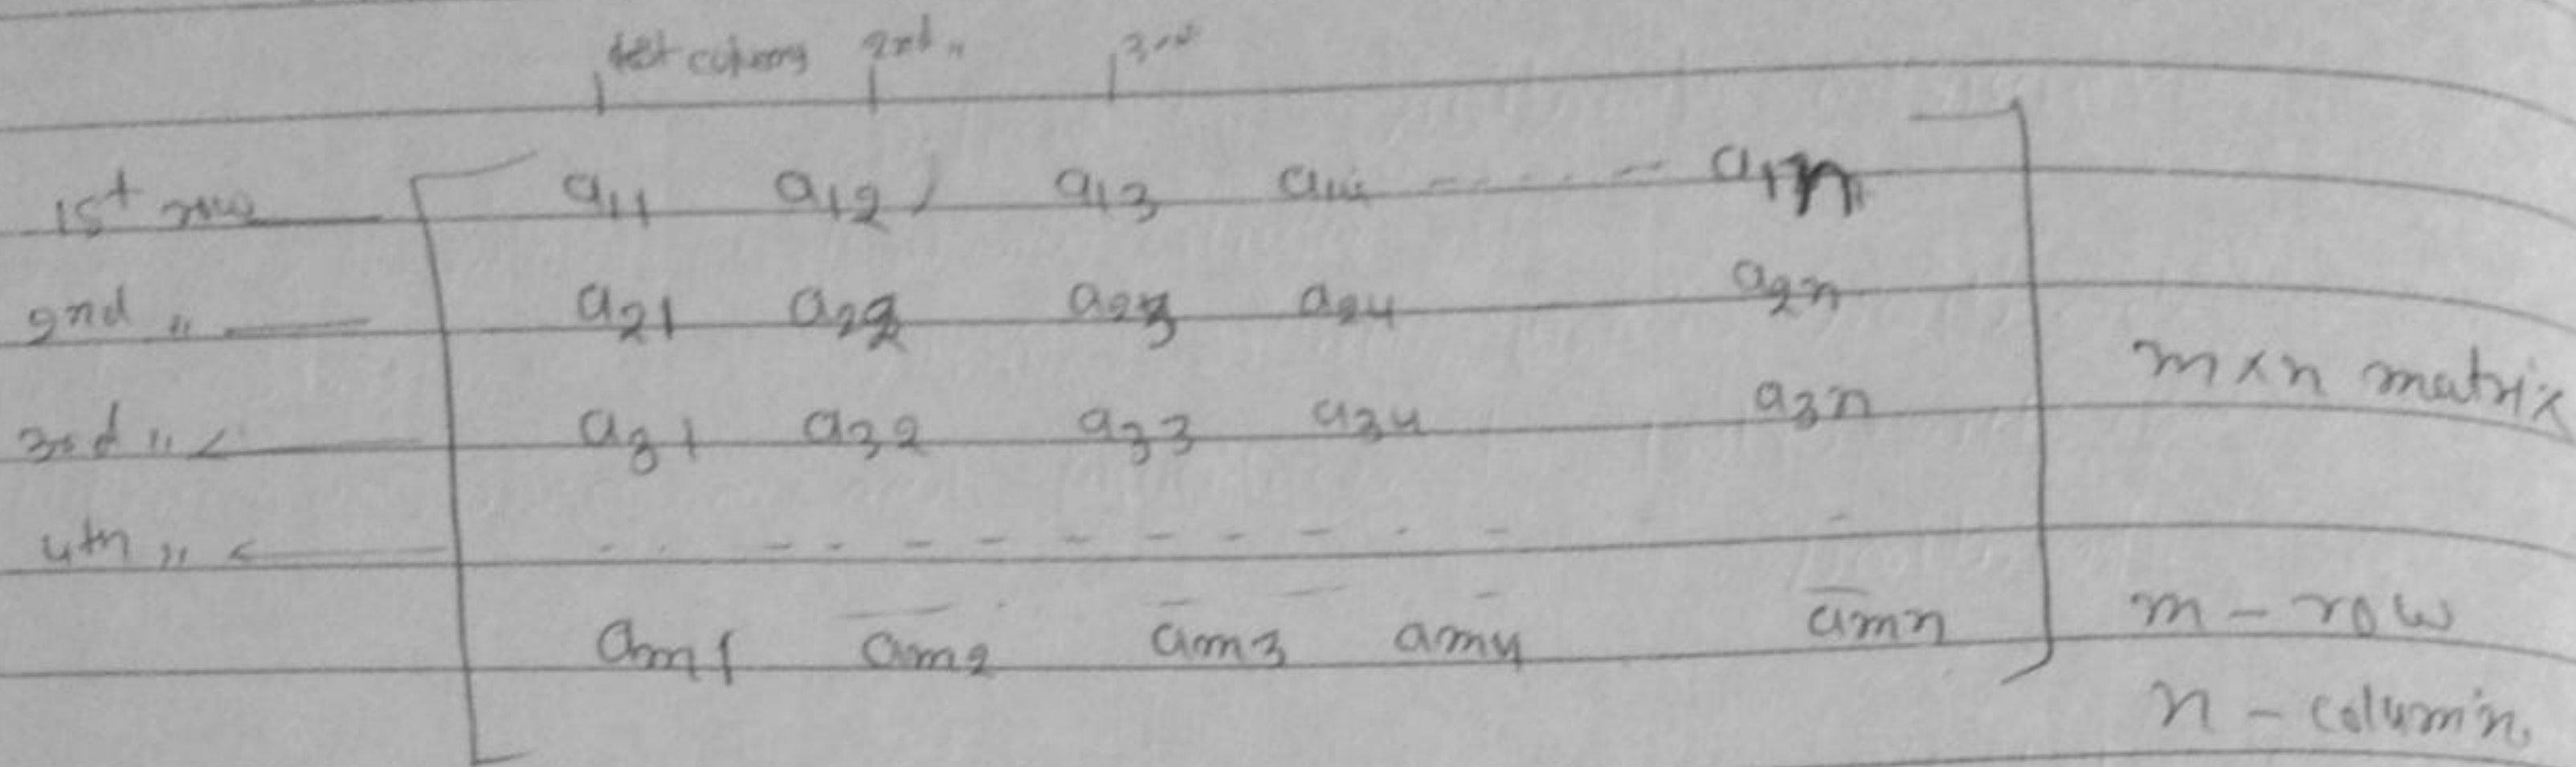 1st column 2nd " 3rd
1st row a11 a12 a13 a14 ------ a1n
2nd " a21 a22 a23 a24 a2n
3rd " a31 a32 a33 a34 a3n
m×n matrix
4th " - - - - - - - - - - - - -
am1 am2 am3 am4 amn
m - row
n - column